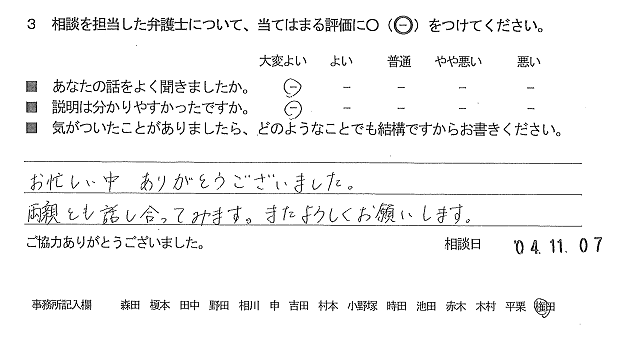 3 相談を担当した弁護士について、当てはまる評価に○（㊀）をつけてください。
大変よい よい 普通 やや悪い 悪い
■ あなたの話をよく聞きましたか。 ㊀ － － － －
■ 説明は分かりやすかったですか。 ㊀ － － － －
■ 気がついたことがありましたら、どのようなことでも結構ですからお書きください。
お忙しい中 ありがとうございました。
両親とも話し合ってみます。またよろしくお願いします。
ご協力ありがとうございました。 相談日 '04.11.07
事務所記入欄 森田 榎本 田中 野田 相川 申 吉田 村本 小野塚 時田 池田 赤木 木村 平栗 権田